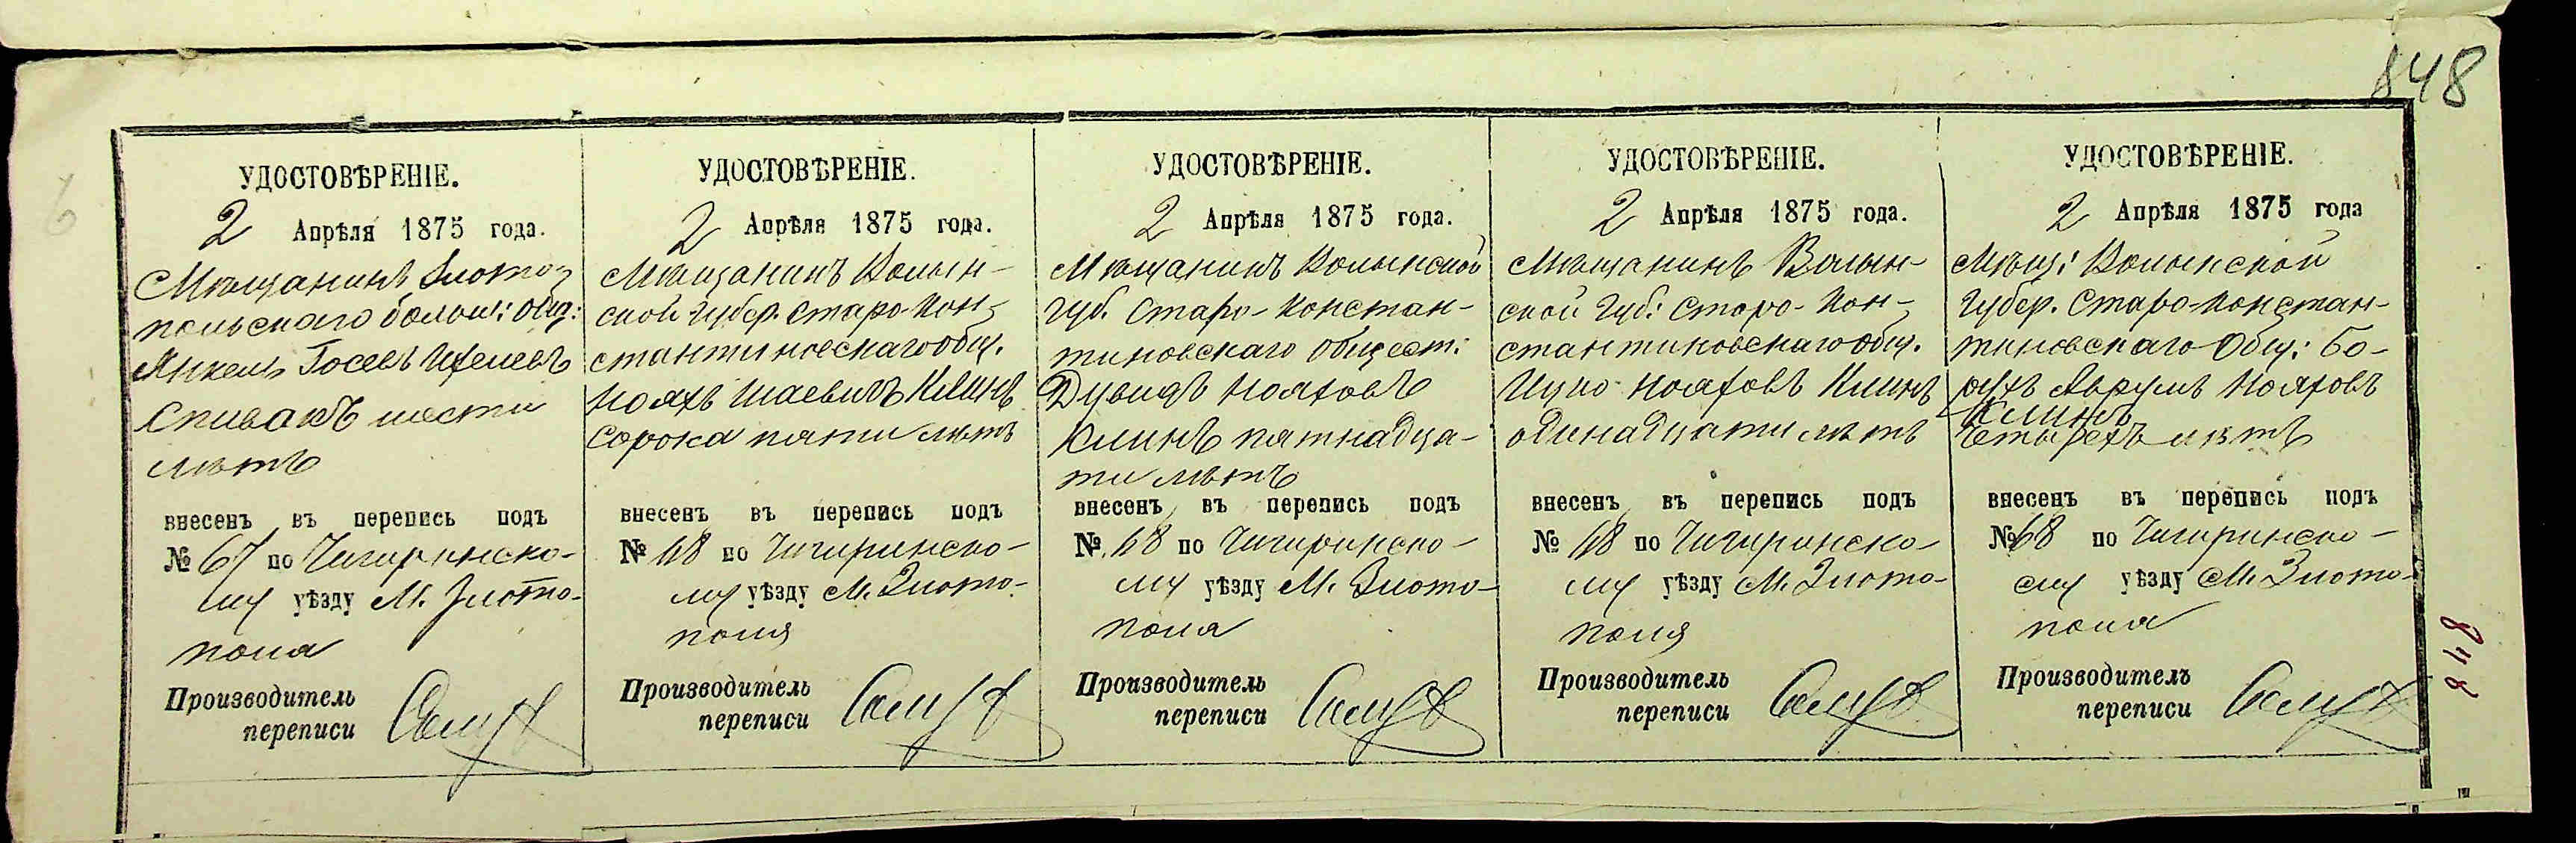 848
УДОСТОВѢРЕНІЕ.
2 Апрѣля 1875 года.
Мѣщанинъ Злото-
польскаго больш: общ:
Янкель Іосевъ Ицелевъ
Спивакъ шести
лѣтъ
внесенъ въ перепись подъ
№ 67 по Чигиринско-
му уѣзду М. Злото-
поля
Производитель
переписи
УДОСТОВѢРЕНІЕ.
2 Апрѣля 1875 года.
Мѣщанинъ Волын-
ской губер. Старо-Кон-
стантиновскаго общ.
Нояхъ Шаевичъ Клинъ
сорока пяти лѣтъ
внесенъ въ перепись подъ
№ 68 по Чигиринско-
му уѣзду М. Злото-
поля
Производитель
переписи
УДОСТОВѢРЕНІЕ.
2 Апрѣля 1875 года.
Мѣщанинъ Волынской
губ. Старо-Констан-
тиновскаго общест:
Дувидъ Нояховъ
Клинъ пятнадца-
ти лѣтъ
внесенъ въ перепись подъ
№ 68 по Чигиринско-
му уѣзду М. Злото-
поля
Производитель
переписи
УДОСТОВѢРЕНІЕ.
2 Апрѣля 1875 года.
Мѣщанинъ Волын-
ской губ: Старо-Кон-
стантиновскаго общ.
Ицко Нояховъ Клинъ
одинадцати лѣтъ
внесенъ въ перепись подъ
№ 68 по Чигиринско-
му уѣзду М. Злото-
поля
Производитель
переписи
УДОСТОВѢРЕНІЕ.
2 Апрѣля 1875 года
Мѣщ: Волынской
губер. Старо-Констан-
тиновскаго Общ: Бо-
рухъ Аврумъ Нояховъ
Клинъ
четырехъ лѣтъ
внесенъ въ перепись подъ
№ 68 по Чигиринско-
му уѣзду М. Злото-
поля
Производитель
переписи
848